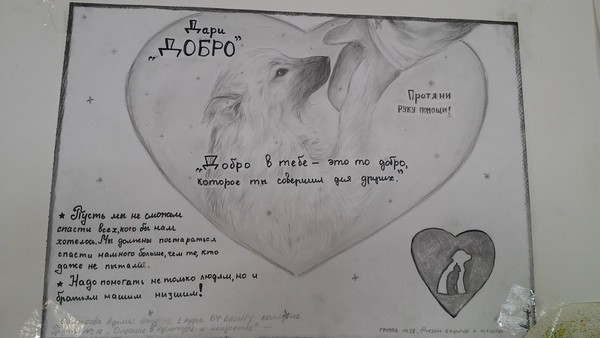 Дари
„ДОБРО"
Протяни
руку помощи!
„Добро в тебе – это то добро,
которое ты совершил для других."
★ Пусть мы не сможем
спасти всех, кого бы нам
хотелось. Мы должны постараться
спасти намного больше, чем те, кто
даже не пытался.
★ Надо помогать не только людям, но и
братьям нашим низшим!
группа